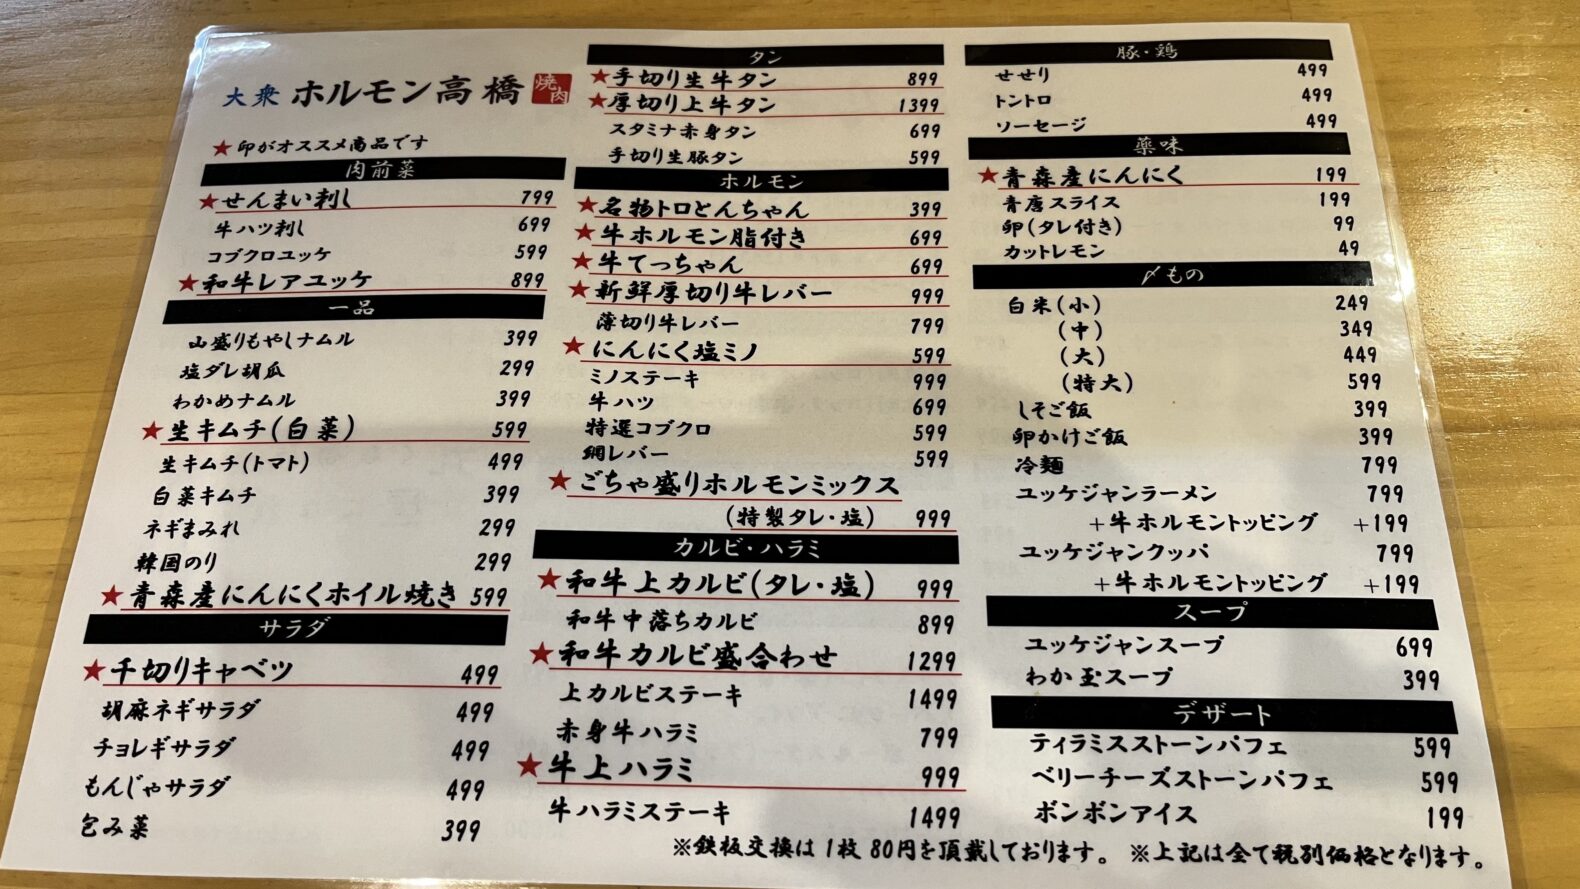 大衆 ホルモン高橋 焼肉
★印がオススメ商品です
肉前菜
★せんまい刺し 799
牛ハツ刺し 699
コブクロユッケ 599
★和牛レアユッケ 899
一品
山盛りもやしナムル 399
塩ダレ胡瓜 299
わかめナムル 399
★生キムチ(白菜) 599
生キムチ(トマト) 499
白菜キムチ 399
ネギまみれ 299
韓国のり 299
★青森産にんにくホイル焼き 599
サラダ
★千切りキャベツ 499
胡麻ネギサラダ 499
チョレギサラダ 499
もんじゃサラダ 499
包み菜 399
タン
★手切り生牛タン 899
★厚切り上牛タン 1399
スタミナ赤身タン 699
手切り生豚タン 599
ホルモン
★名物トロとんちゃん 399
★牛ホルモン脂付き 699
★牛てっちゃん 699
★新鮮厚切り牛レバー 999
薄切り牛レバー 799
★にんにく塩ミノ 599
ミノステーキ 999
牛ハツ 699
特選コブクロ 599
網レバー 599
★ごちゃ盛りホルモンミックス
(特製タレ・塩) 999
カルビ・ハラミ
★和牛上カルビ(タレ・塩) 999
和牛中落ちカルビ 899
★和牛カルビ盛合わせ 1299
上カルビステーキ 1499
赤身牛ハラミ 799
★牛上ハラミ 999
牛ハラミステーキ 1499
豚・鶏
せせり 499
トントロ 499
ソーセージ 499
薬味
★青森産にんにく 199
青唐スライス 199
卵(タレ付き) 99
カットレモン 49
〆もの
白米(小) 249
(中) 349
(大) 449
(特大) 599
しそご飯 399
卵かけご飯 399
冷麺 799
ユッケジャンラーメン 799
+牛ホルモントッピング +199
ユッケジャンクッパ 799
+牛ホルモントッピング +199
スープ
ユッケジャンスープ 699
わか玉スープ 399
デザート
ティラミスストーンパフェ 599
ベリーチーズストーンパフェ 599
ボンボンアイス 199
※鉄板交換は1枚80円を頂戴しております。 ※上記は全て税別価格となります。